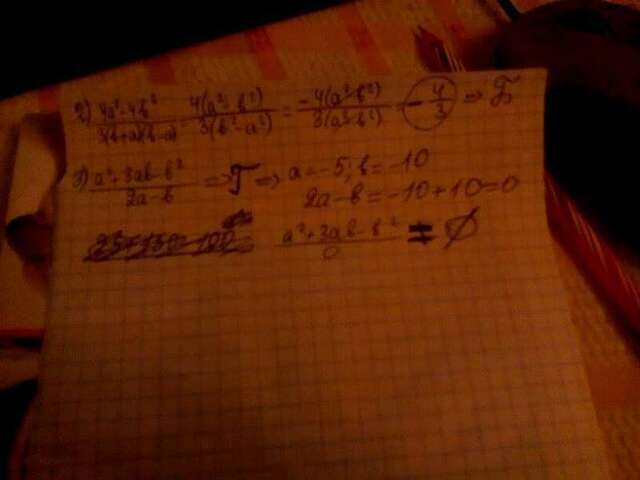 2) 4a²-4b² / 3(b+a)(b-a) = 4(a²-b²) / 3(b²-a²) = -4(a²-b²) / 3(a²-b²) = -4/3 ⇒ Б
3) a²+3ab-b² / 2a-b ⇒ Г ⇒ a=-5; b=-10
2a-b=-10+10=0
a²+3ab-b² / 0 = ∅